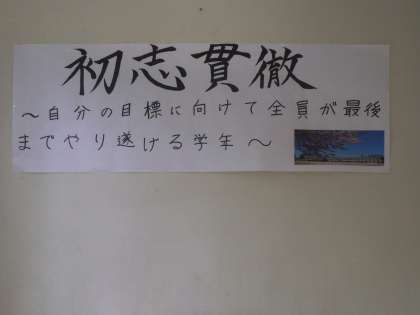 初志貫徹
～自分の目標に向けて全員が最後
までやり遂げる学年～